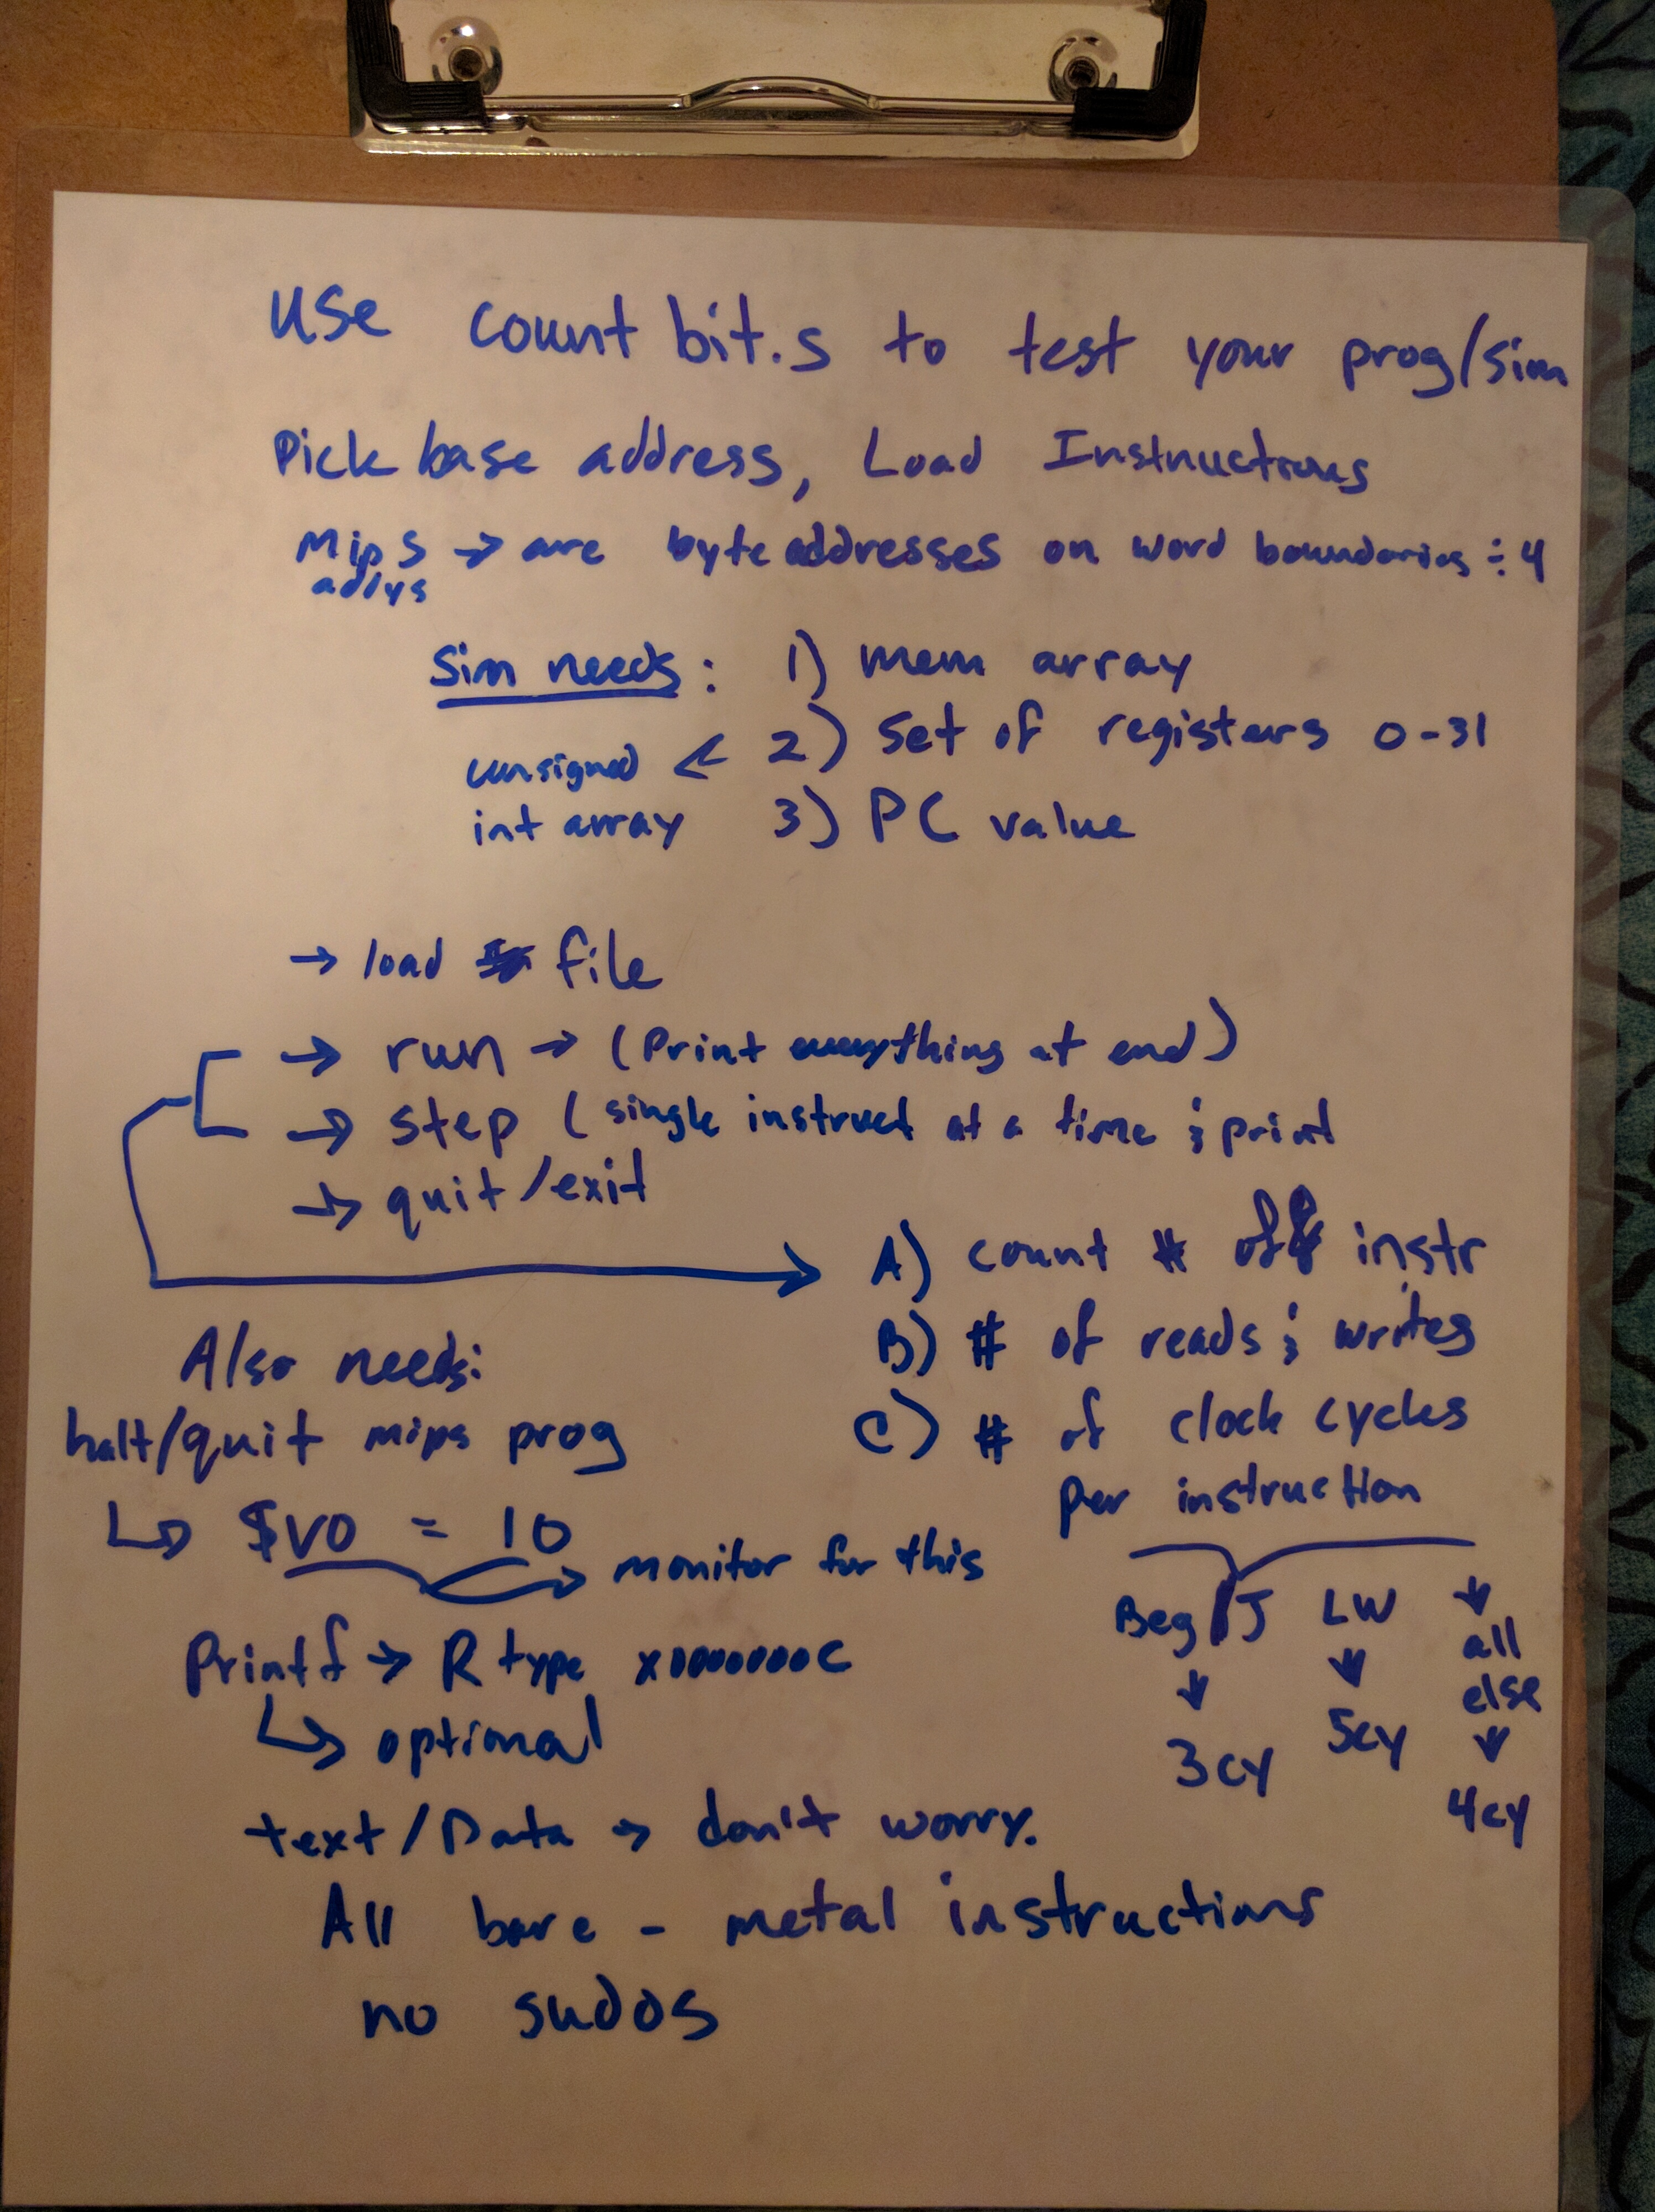 Use count bit.s to test your prog/sim
Pick base address, Load Instructions
Mips → are byte addresses on word boundaries ÷ 4
Sim needs: 1) mem array
2) set of registers 0-31
unsigned
int array
3) PC value
→ load file
→ run → (Print everything at end)
→ step (single instruct at a time & print
→ quit/exit
A) count # of instr
B) # of reads & writes
C) # of clock cycles
per instruction
Beq/J LW all
else
3cy 5cy 4cy
Also needs:
halt/quit mips prog
↳ $v0 = 10
→ monitor for this
Printf → R type x0000000C
↳ optional
text/Data → don't worry.
All bare - metal instructions
no sudos